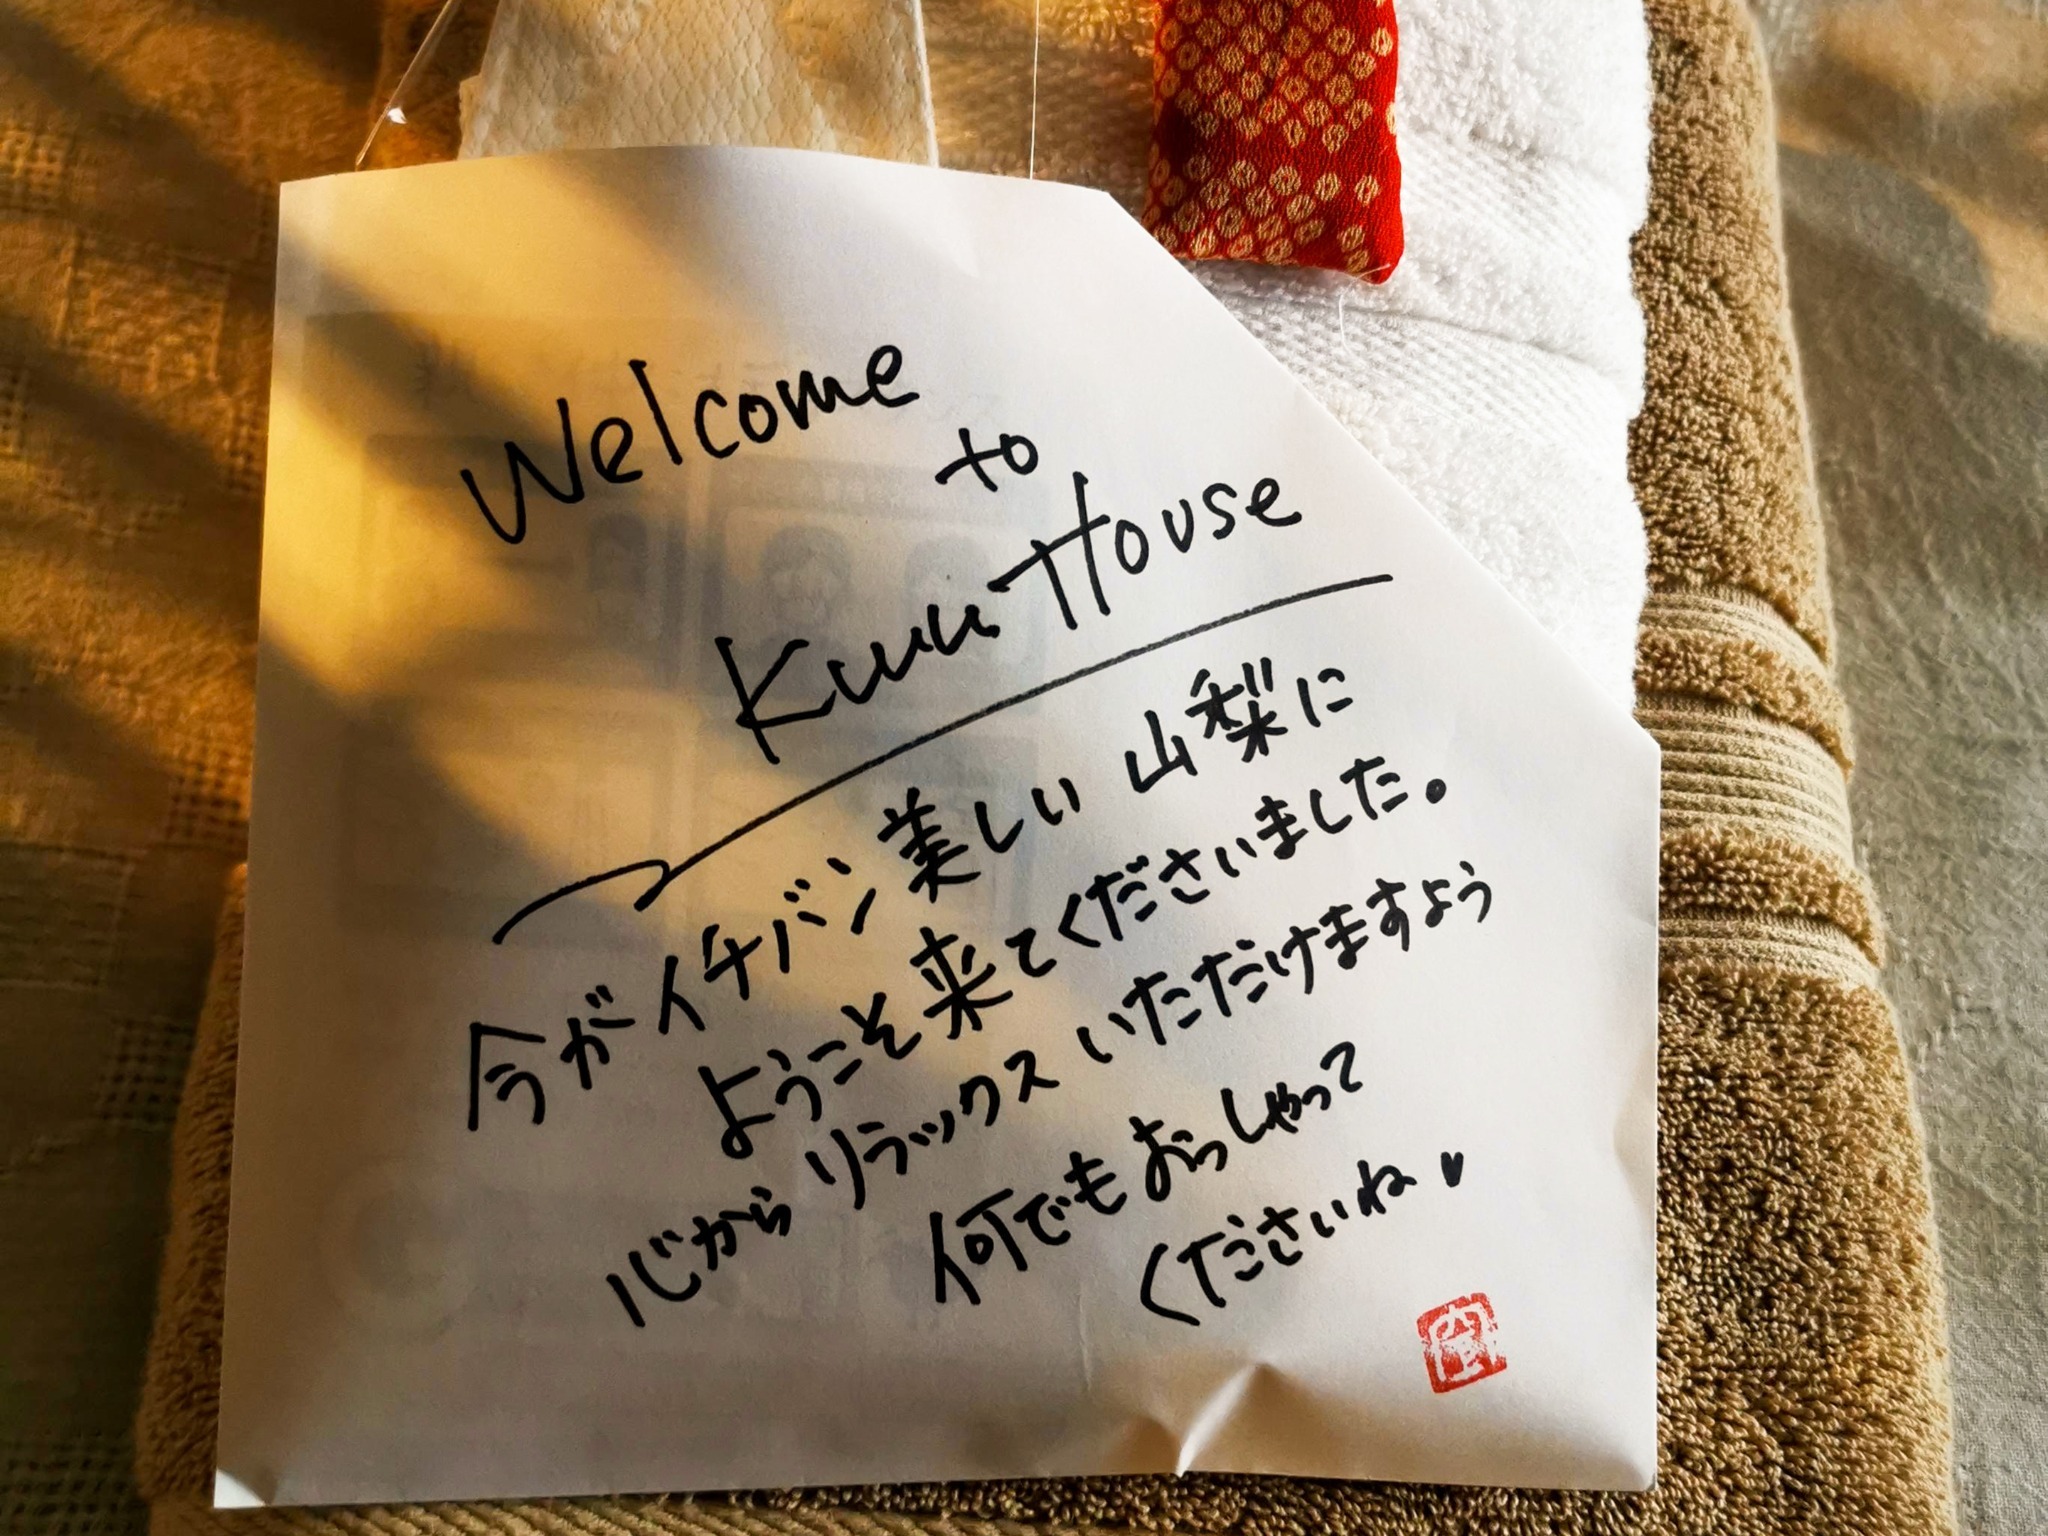 Welcome
to
Kuu House
今がイチバン美しい山梨に
ようこそ来てくださいました。
心からリラックスいただけますよう
何でもおっしゃって
くださいね♥